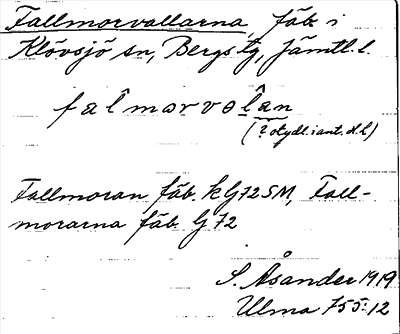 Tallmorvallarna, fäb. i
Klövsjö sn, Bergs tg, Jämtl. l.
falmorvolan
(? otydl. i ant. d. h)
Tallmoran fäb. k G72SM, Tall-
morarna fäb. G 72
S. Åsander 1919
Ulma 755:12